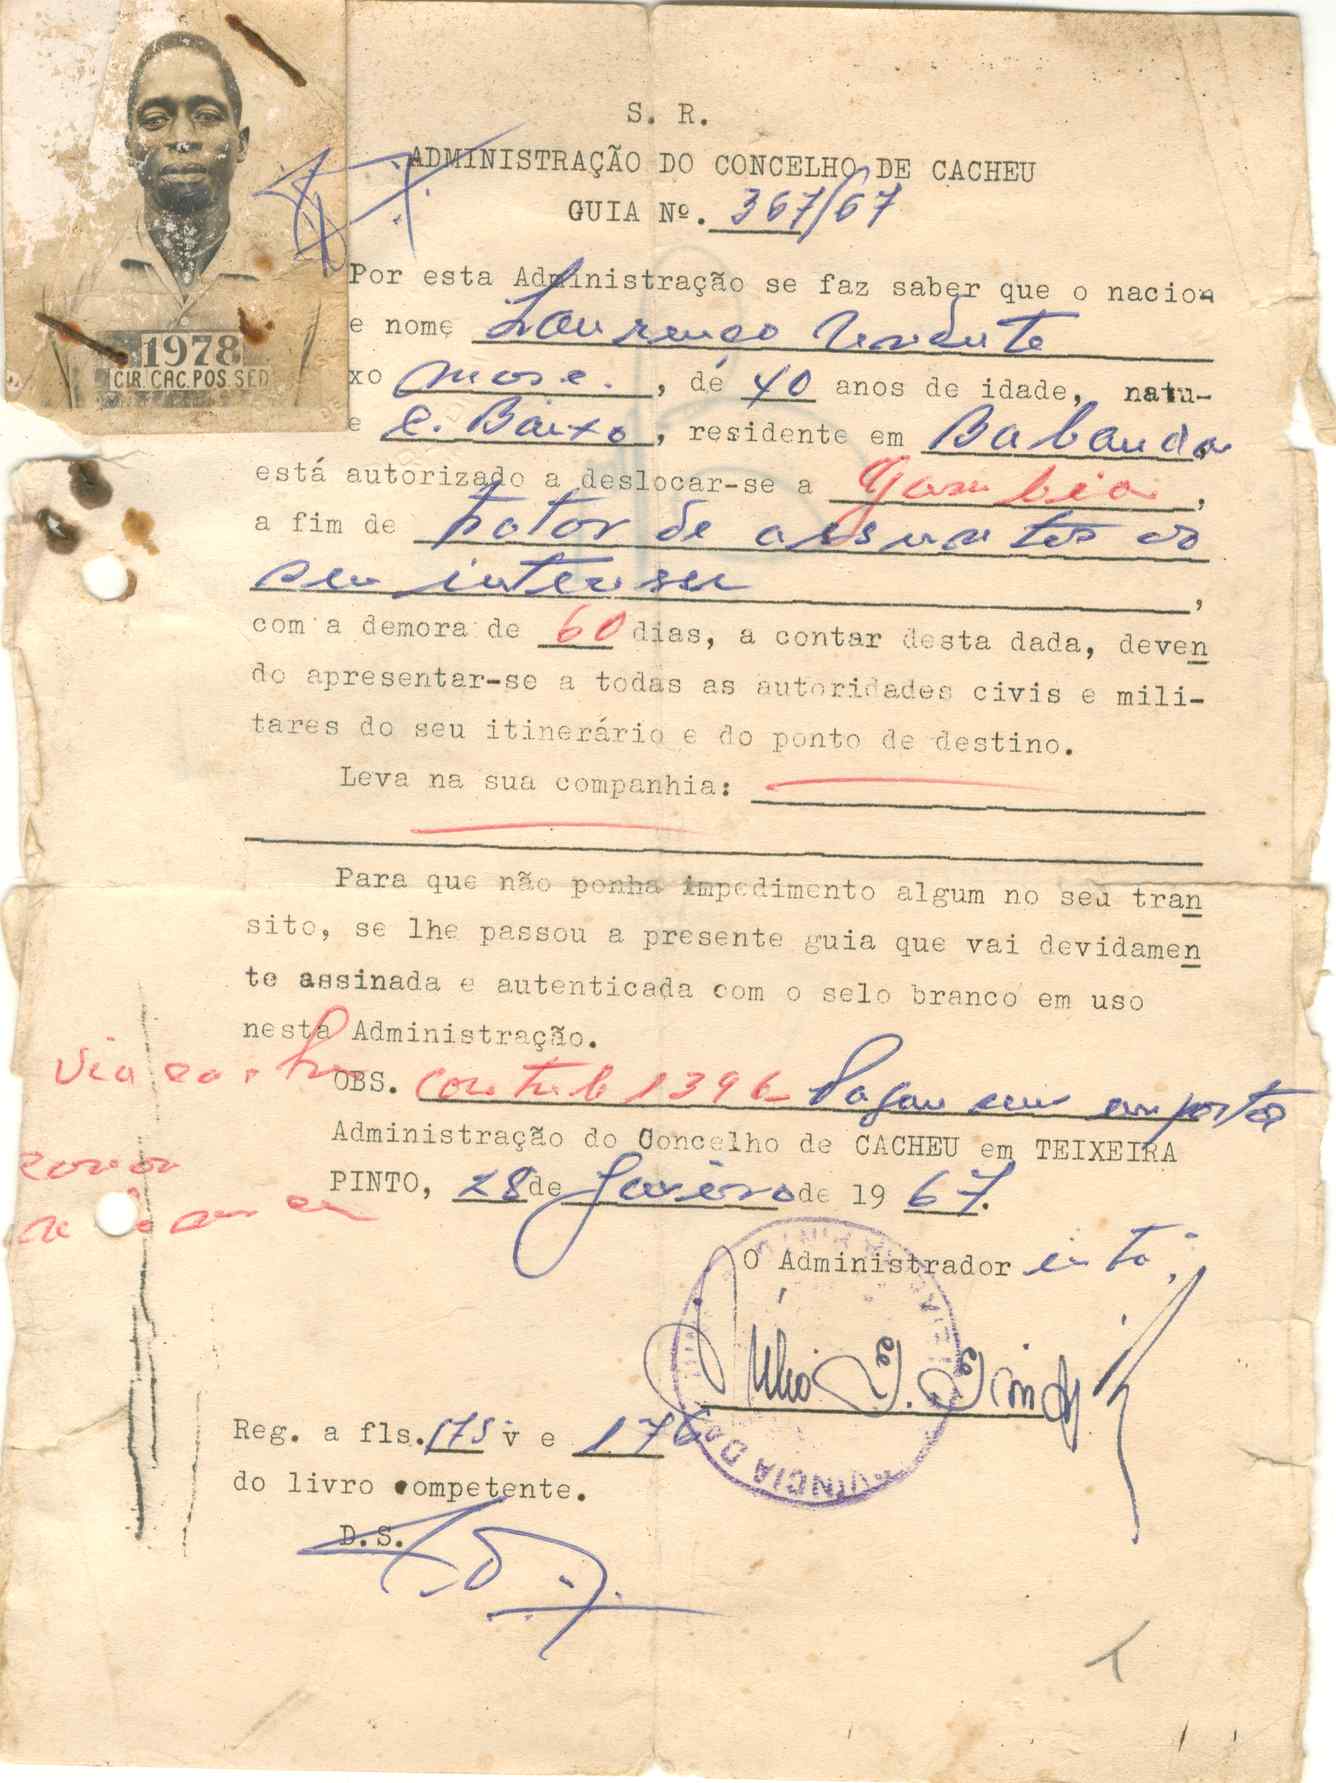 S. R.
ADMINISTRAÇÃO DO CONCELHO DE CACHEU
GUIA Nº. 367/67
Por esta Administração se faz saber que o nacion
e nome Lourenço
xo masc. , de 40 anos de idade, natu-
e C. Baixo, residente em Babanda
está autorizado a deslocar-se a Gambia,
a fim de tratar de assuntos do
seu interesse,
com a demora de 60 dias, a contar desta dada, deven
do apresentar-se a todas as autoridades civis e mili-
tares do seu itinerário e do ponto de destino.
Leva na sua companhia:
Para que não ponha impedimento algum no seu tran
sito, se lhe passou a presente guia que vai devidamen
te assinada e autenticada com o selo branco em uso
nesta Administração.
OBS. Contrib 1396 Pagou seu imposto
Administração do Concelho de CACHEU em TEIXEIRA
PINTO, 28 de Janeiro de 19 67.
O Administrador intº,
Reg. a fls. 175 v e 176
do livro competente.
D.S.
1978
CIR.CAC.POS.SED